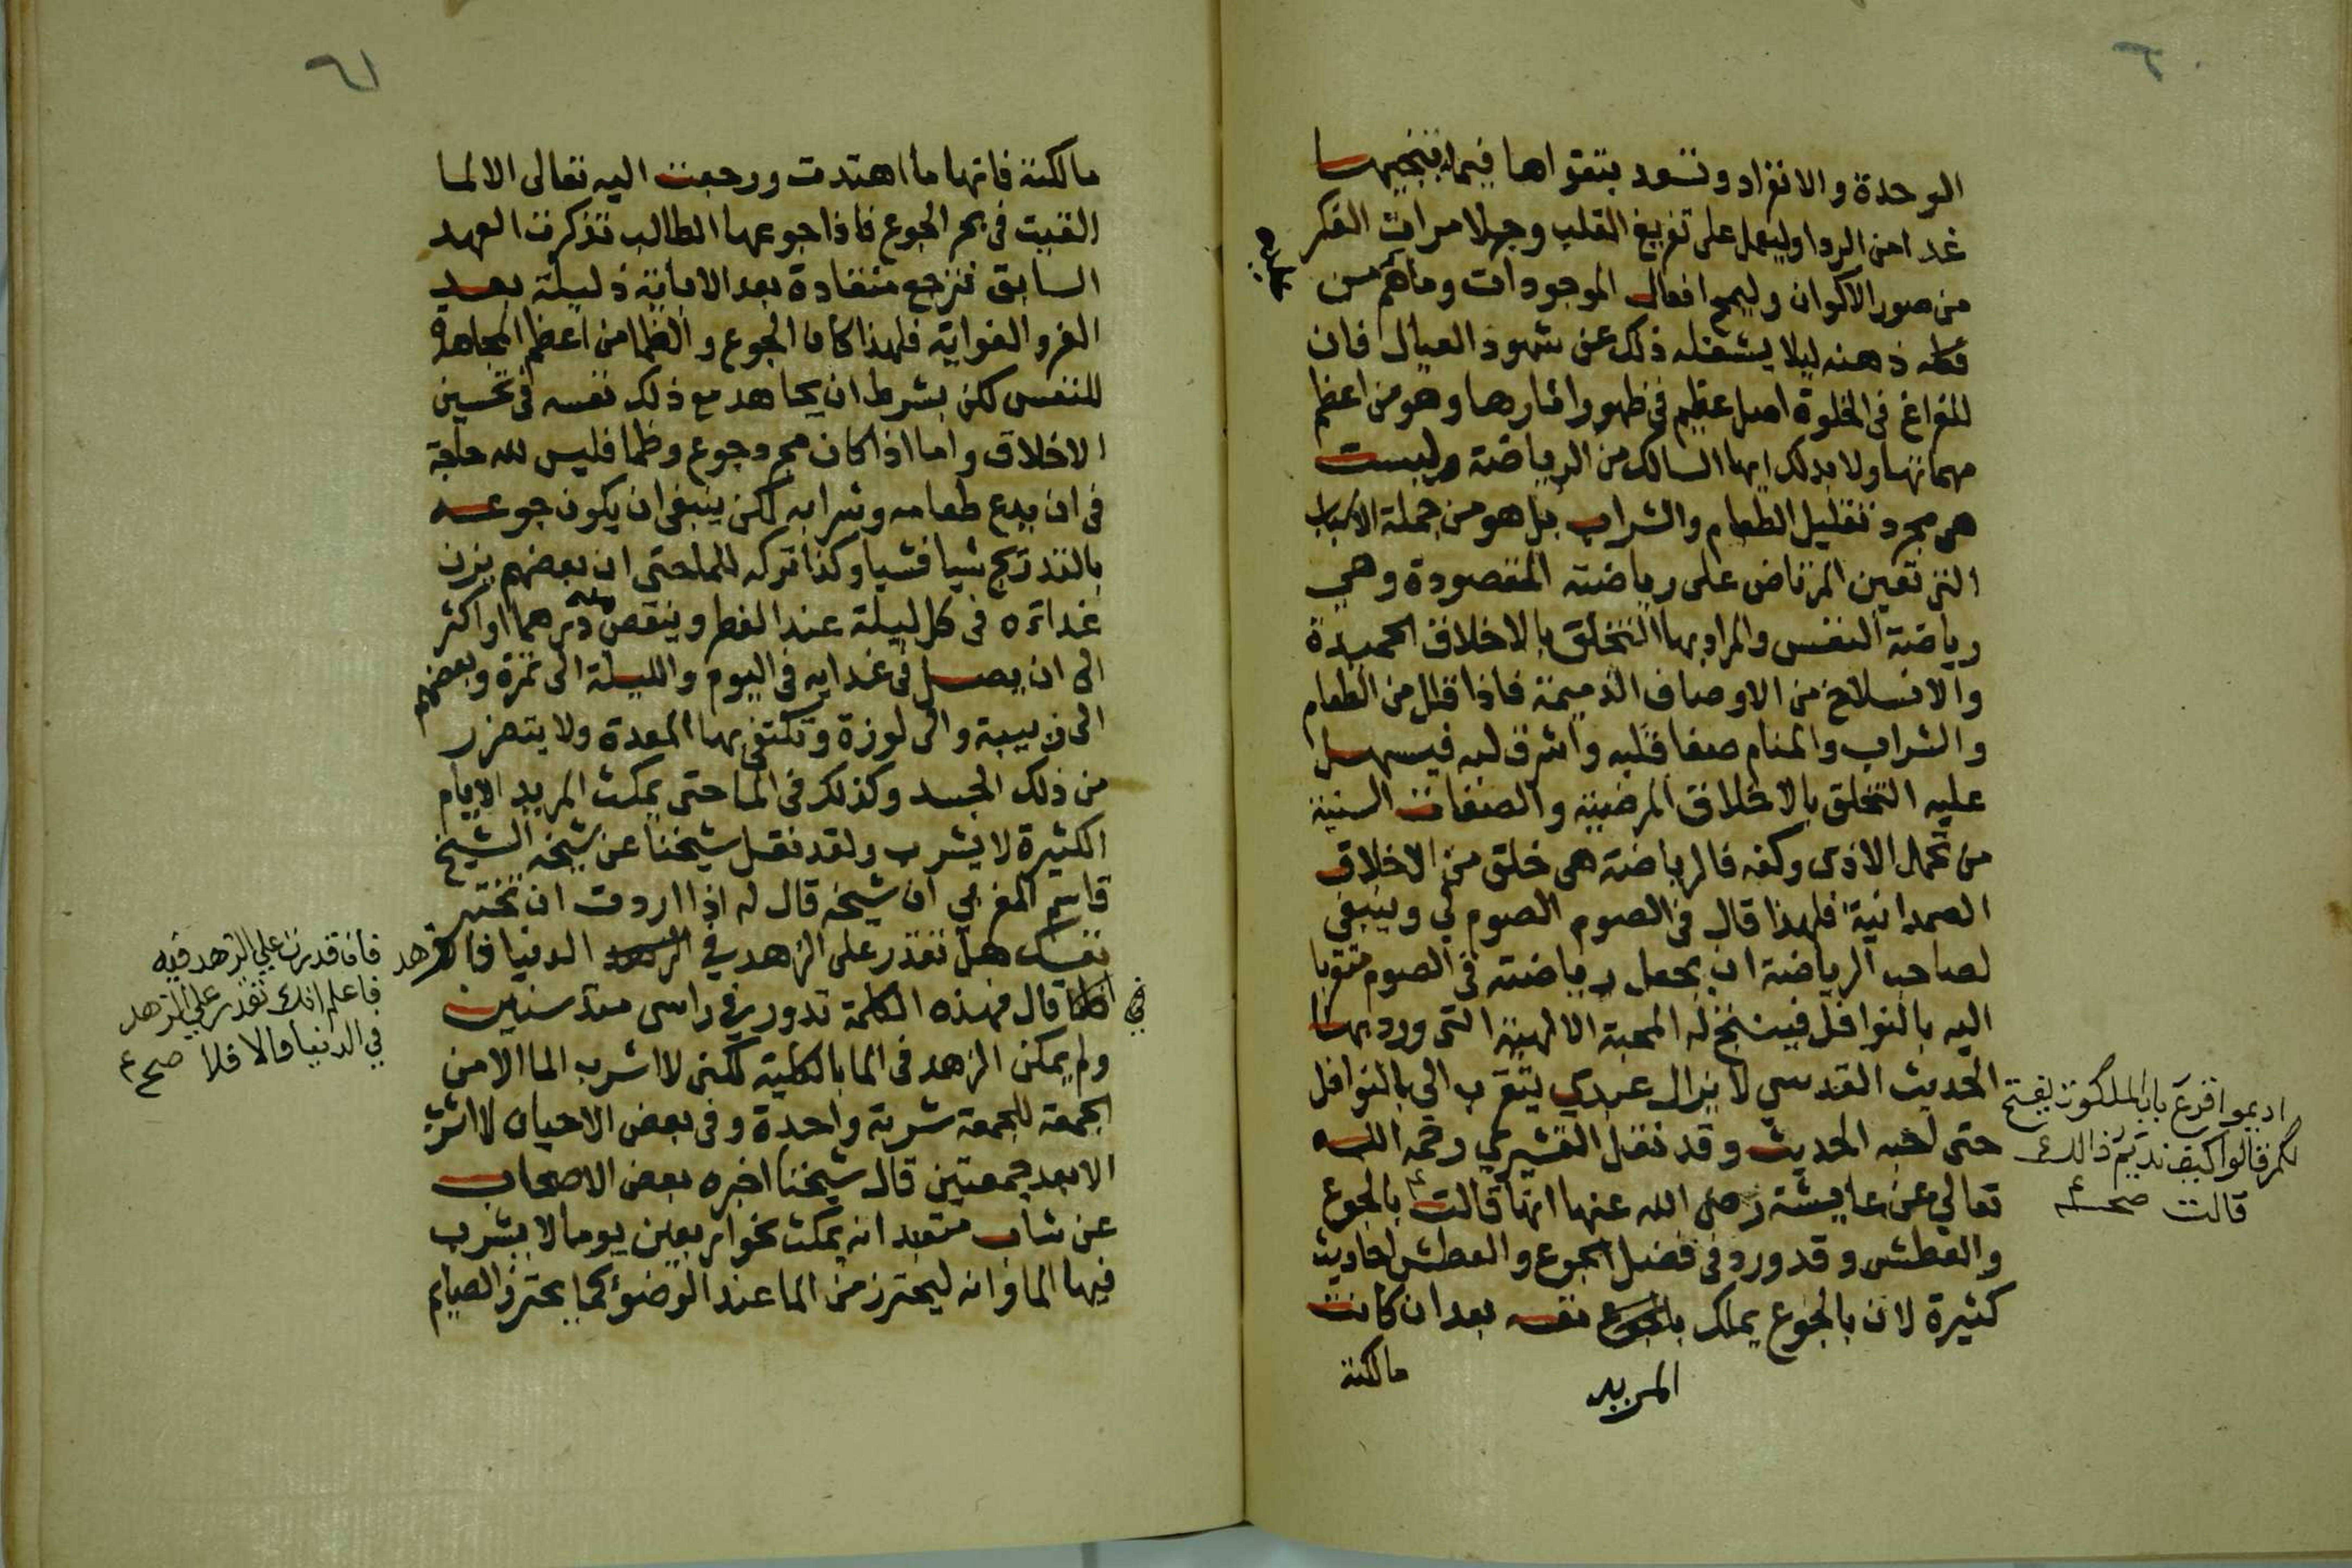 ٢٠
الوحدة والانفراد وتسود بتقواها فيما ينجيها
غدا من الردا وليعمل على تفريغ القلب وجهلا مرات الفكر
من صور الاكوان وليمح افعال الموجودات وما هم من
ذهنه ليلا يشغله ذلك عن شهود العيال فان
للفراغ في الخلوة اصل عظيم في ظهور اثارها وهو من اعظم
مهماتها ولا بدلك ايها السالك من الرياضة وليست
هي مجرد تقليل الطعام والشراب بل هو من جملة الاسباب
التي تعين المرتاض على رياضته المقصودة وهي
رياضة النفس والمراد بها التخلق بالاخلاق الحميدة
والانسلاخ من الاوصاف الذميمة فاذا قلل من الطعام
والشراب والمنام صفا قلبه واشرق لبه فيسهل
عليه التخلق بالاخلاق المرضية والصفات السنية
من تحمل الاذى وكفه فالرياضة هي خلق من الاخلاق
الصمدانية فلهذا قال في الصوم الصوم لي وينبغي
لصاحب الرياضة ان يجعل رياضته في الصوم متقربا
اليه بالنوافل فينتج له المحبة الالهية التي ورد بها
الحديث القدسي لا يزال عبدي يتقرب الي بالنوافل
حتى احبه الحديث وقد نقل القشيري رحمه الله
تعالي عن عايشة رضى الله عنها انها قالت بالجوع
والعطش وقد ورد في فضل الجوع والعطش احاديث
كثيرة لان بالجوع يملك بالجوع نفسه بعد ان كانت
المريد
مالكته
اديموا قرع باب الملكوت يفتح
لكم قالوا كيف نديم ذالك
قالت صح
٢١
مالكته فانها ما اهتدت ورجعت اليه تعالى الا لما
القيت في بحر الجوع فاذا جوعها الطالب تذكرت العهد
السابق فترجع منقادة بعد الاباية ذليلة بعد
العز والغواية فلهذا كان الجوع والظما من اعظم المجاهدة
للنفس لكن بشرط ان يجاهد مع ذلك نفسه في تحسين
الاخلاق واما اذا كان مجرد جوع وظما فليس لله حاجة
في ان يدع طعامه وشرابه لكن ينبغي ان يكون جوعه
بالتدريج شيا فشيا وكذا تركه للما حتى ان بعضهم يزن
غداءه في كل ليلة عند الفطر وينقص منه درهما او اكثر
الى ان يصل في غدايه في اليوم والليلة الى تمرة وبعضهم
الى زبيبة والى لوزة وتكتفي بها المعدة ولا يتضرر
من ذلك الجسد وكذلك في الما حتى يمكث المريد الايام
الكثيرة لا يشرب ولقد نقل شيخنا عن شيخه الشيخ
قاسم المغربي ان شيخه قال له اذا اردت ان تختبر
نفسك هل تقدر على الزهد في الدنيا فازهد
في الما قال فهذه الكلمة تدور في راسى مدة سنين
ولم يمكن الزهد في الما بالكلية لكني لا اشرب الما الا من
الجمعة للجمعة شربة واحدة وفي بعض الاحيان لا اشرب
الا بعد جمعتين قال شيخنا اخبره بعض الاصحاب
عن شاب متعبد انه يمكث نحو اربعين يوما لا يشرب
فيها الما وانه ليحترز من الما عند الوضوء كما يحترز الصايم
فان قدرت علي الزهد فيه
فاعلم انك تقدر علي الزهد
في الدنيا والا فلا صح